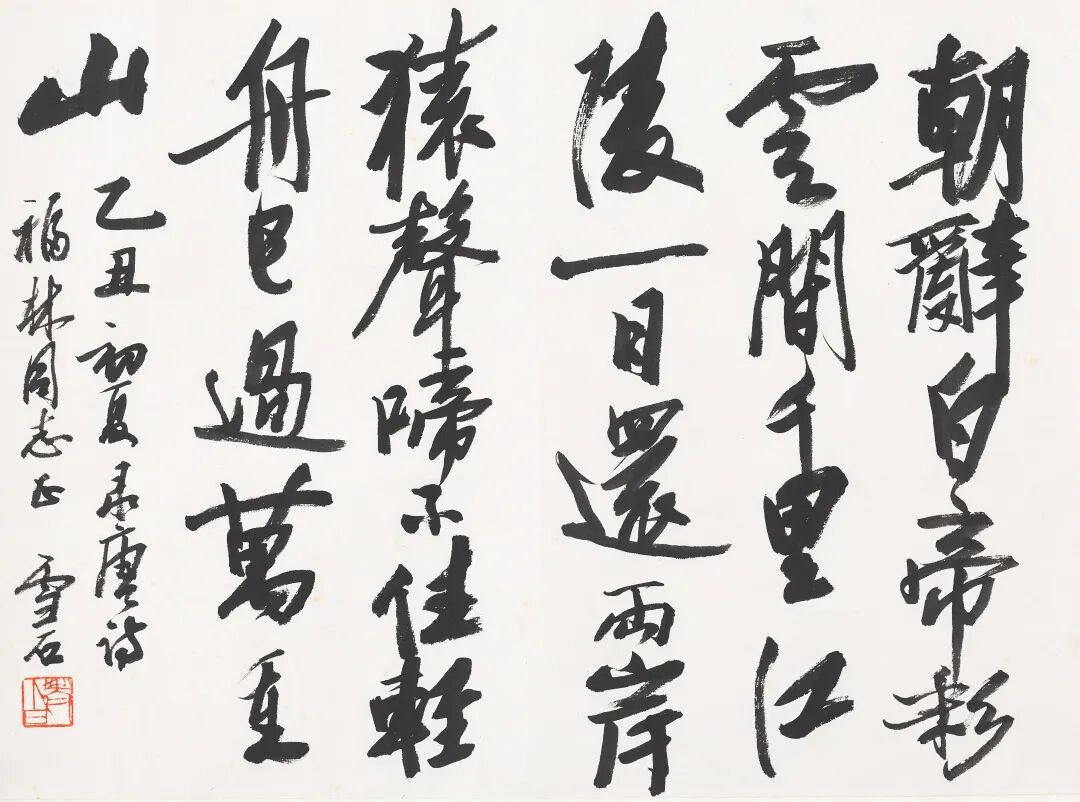 朝辭白帝彩
雲間千里江
陵一日還兩岸
猿聲啼不住輕
舟已過萬重
山
乙丑初夏录唐诗
福林同志正 雪石